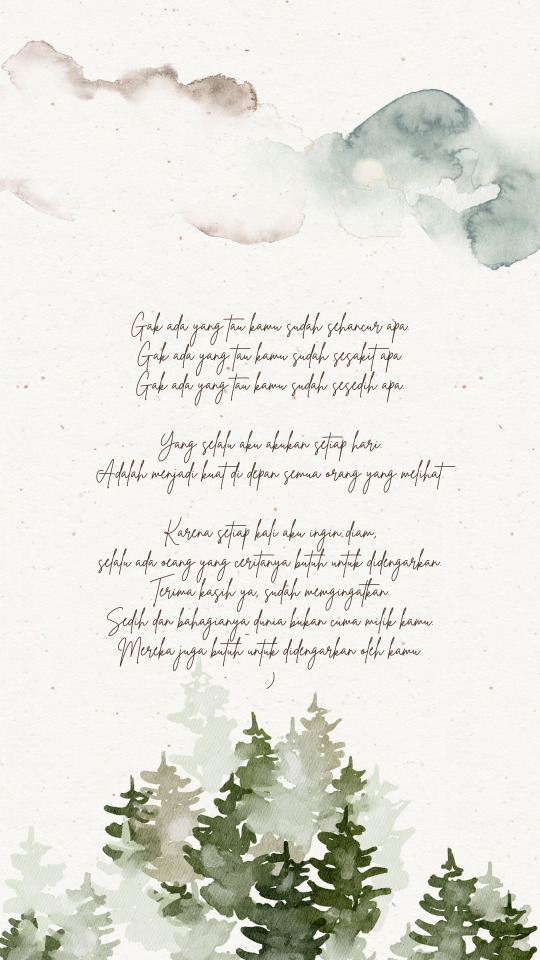 Gak ada yang tau kamu sudah sehancur apa.
Gak ada yang tau kamu sudah sesakit apa.
Gak ada yang tau kamu sudah sesedih apa.
Yang selalu aku akukan setiap hari.
Adalah menjadi kuat di depan semua orang yang melihat.
Karena setiap kali aku ingin diam,
selalu ada oeang yang ceritanya butuh untuk didengarkan.
Terima kasih ya, sudah memgingatkan.
Sedih dan bahagianya dunia bukan cuma milik kamu.
Mereka juga butuh untuk didengarkan oleh kamu.
:)